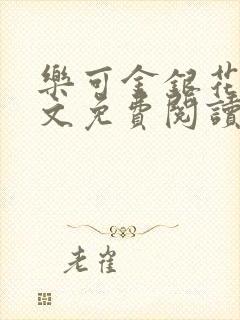 樂可金銀花
文免費閱讀
老崔